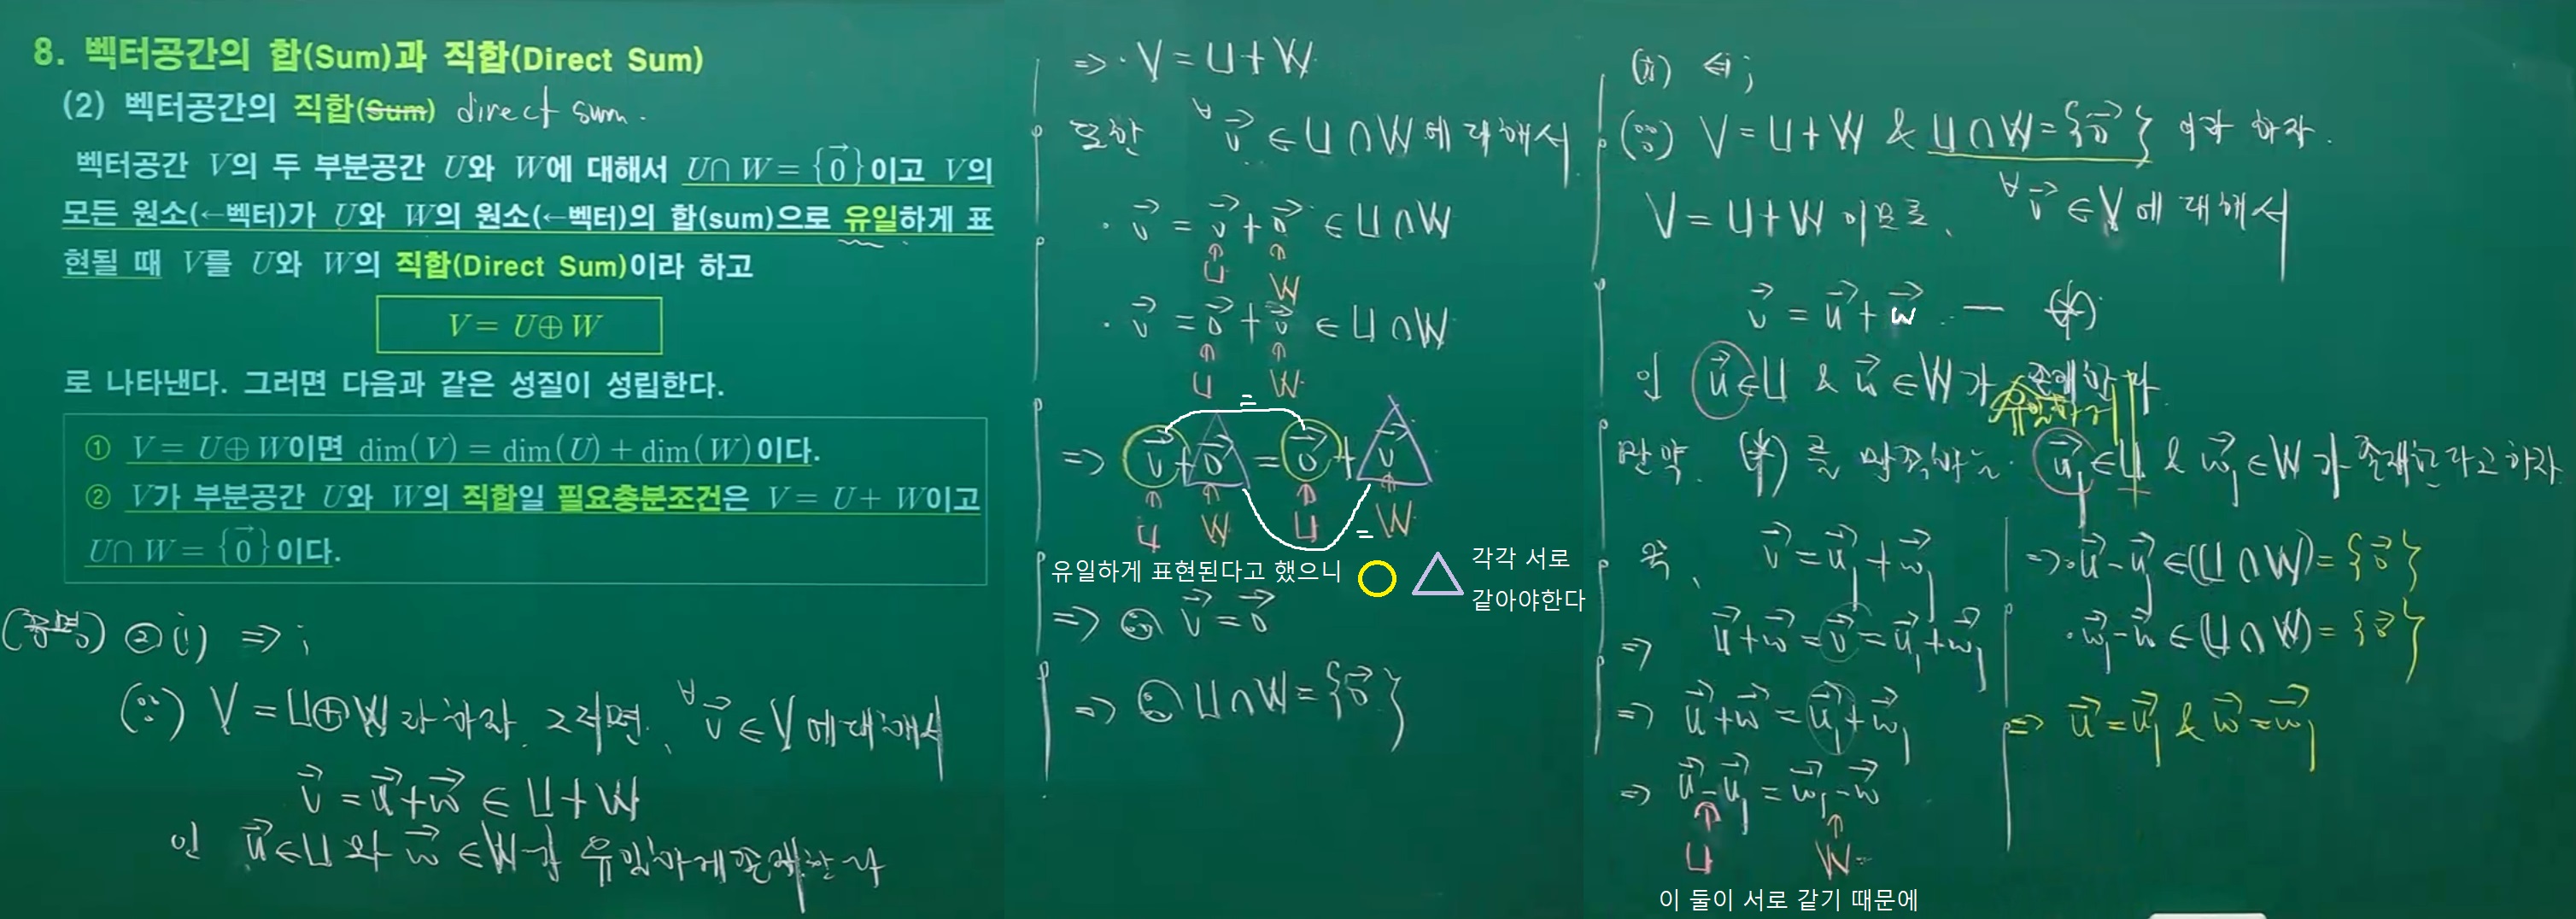 8. 벡터공간의 합(Sum)과 직합(Direct Sum)
(2) 벡터공간의 직합(Sum) direct sum.
벡터공간 V의 두 부분공간 U와 W에 대해서 U∩W={0⃗}이고 V의
모든 원소(←벡터)가 U와 W의 원소(←벡터)의 합(sum)으로 유일하게 표
현될 때 V를 U와 W의 직합(Direct Sum)이라 하고
V=U⊕W
로 나타낸다. 그러면 다음과 같은 성질이 성립한다.
① V=U⊕W이면 dim(V)=dim(U)+dim(W)이다.
② V가 부분공간 U와 W의 직합일 필요충분조건은 V=U+W이고
U∩W={0⃗}이다.
(증명) ② (i) ⇒ ;
(∵) V=U⊕W라 하자. 그러면, ∀v⃗∈V에 대해서
v⃗=u⃗+w⃗∈U+W
인 u⃗∈U와 w⃗∈W가 유일하게 존재한다
⇒ · V=U+W
또한 ∀v⃗∈U∩W에 대해서
· v⃗=v⃗+0⃗∈U∩W
↑ ↑
U W
· v⃗=0⃗+v⃗∈U∩W
↑ ↑
U W
=
⇒ v⃗+0⃗=0⃗+v⃗
↑ ↑ ↑ ↑
U W U W
=
유일하게 표현된다고 했으니 ○ △ 각각 서로
같아야한다
⇒ ∴ v⃗=0⃗
⇒ ∴ U∩W={0⃗}
(ii) ⇐ ;
(∵) V=U+W & U∩W={0⃗} 이라 하자.
V=U+W 이므로, ∀v⃗∈V에 대해서
v⃗=u⃗+w⃗ — (*)
인 u⃗∈U & w⃗∈W가 존재한다
유일하게
만약, (*)를 만족하는 u⃗₁∈U & w⃗₁∈W가 존재한다고 하자
즉, v⃗=u⃗₁+w⃗₁
⇒ u⃗+w⃗=v⃗=u⃗₁+w⃗₁
⇒ u⃗+w⃗=u⃗₁+w⃗₁
⇒ u⃗-u⃗₁=w⃗₁-w⃗
↑ ↑
U W
이 둘이 서로 같기 때문에
⇒ · u⃗-u⃗₁∈(U∩W)={0⃗}
· w⃗₁-w⃗∈(U∩W)={0⃗}
⇒ u⃗=u⃗₁ & w⃗=w⃗₁